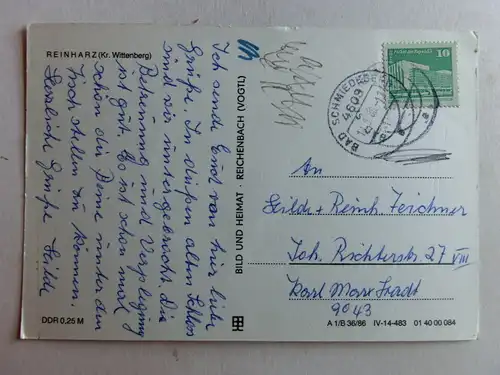 REINHARZ (Kr. Wittenberg)
Ich sende Euch von hier liebe
Grüße. In diesem alten Schloss
sind wir untergebracht. Die
Betreuung und Verpflegung
ist gut. Es ist schon mal
schön die Beine unter den
Tisch stellen zu können.
Herzliche Grüße Heidi
DDR 0,25 M
BILD UND HEIMAT · REICHENBACH (VOGTL)
10
BAD SCHMIEDEBERG
4609
An
+ Reinh. Zeichner
Joh. Richterstr. 27 VIII
Karl Marx Stadt
9043
A 1/B 36/86 IV-14-483 01 40 00 084